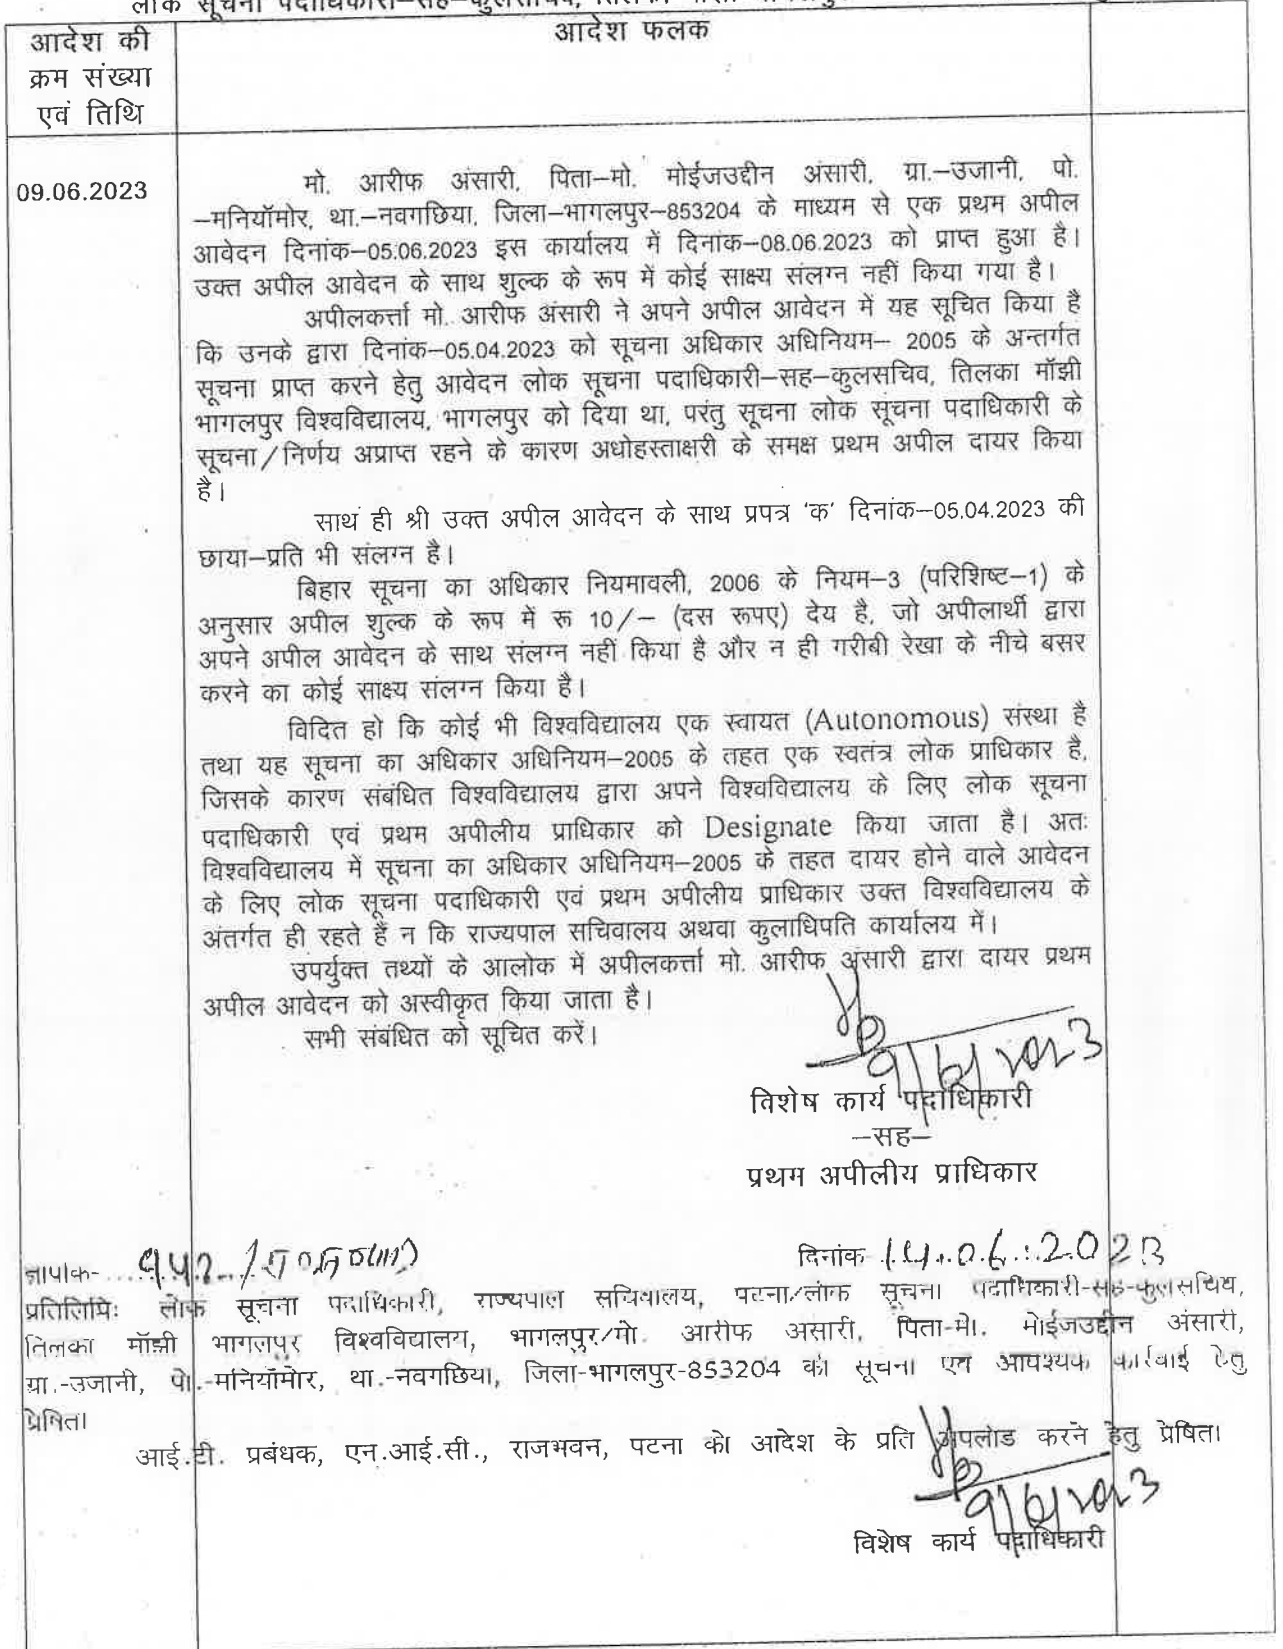 लोक सूचना पदाधिकारी–सह–कुलसचिव, तिलका
आदेश की
क्रम संख्या
एवं तिथि
आदेश फलक
09.06.2023
मो. आरीफ अंसारी, पिता–मो. मोईजउद्दीन अंसारी, ग्रा.–उजानी, पो.
–मनियॉमोर, था.–नवगछिया, जिला–भागलपुर–853204 के माध्यम से एक प्रथम अपील
आवेदन दिनांक–05.06.2023 इस कार्यालय में दिनांक–08.06.2023 को प्राप्त हुआ है।
उक्त अपील आवेदन के साथ शुल्क के रूप में कोई साक्ष्य संलग्न नहीं किया गया है।
अपीलकर्त्ता मो. आरीफ अंसारी ने अपने अपील आवेदन में यह सूचित किया है
कि उनके द्वारा दिनांक–05.04.2023 को सूचना अधिकार अधिनियम– 2005 के अन्तर्गत
सूचना प्राप्त करने हेतु आवेदन लोक सूचना पदाधिकारी–सह–कुलसचिव, तिलका मॉंझी
भागलपुर विश्वविद्यालय, भागलपुर को दिया था, परंतु सूचना लोक सूचना पदाधिकारी के
सूचना/निर्णय अप्राप्त रहने के कारण अधोहस्ताक्षरी के समक्ष प्रथम अपील दायर किया
है।
साथ ही श्री उक्त अपील आवेदन के साथ प्रपत्र 'क' दिनांक–05.04.2023 की
छाया–प्रति भी संलग्न है।
बिहार सूचना का अधिकार नियमावली, 2006 के नियम–3 (परिशिष्ट–1) के
अनुसार अपील शुल्क के रूप में रू 10/– (दस रूपए) देय है, जो अपीलार्थी द्वारा
अपने अपील आवेदन के साथ संलग्न नहीं किया है और न ही गरीबी रेखा के नीचे बसर
करने का कोई साक्ष्य संलग्न किया है।
विदित हो कि कोई भी विश्वविद्यालय एक स्वायत (Autonomous) संस्था है
तथा यह सूचना का अधिकार अधिनियम–2005 के तहत एक स्वतंत्र लोक प्राधिकार है,
जिसके कारण संबंधित विश्वविद्यालय द्वारा अपने विश्वविद्यालय के लिए लोक सूचना
पदाधिकारी एवं प्रथम अपीलीय प्राधिकार को Designate किया जाता है। अतः
विश्वविद्यालय में सूचना का अधिकार अधिनियम–2005 के तहत दायर होने वाले आवेदन
के लिए लोक सूचना पदाधिकारी एवं प्रथम अपीलीय प्राधिकार उक्त विश्वविद्यालय के
अंतर्गत ही रहते हैं न कि राज्यपाल सचिवालय अथवा कुलाधिपति कार्यालय में।
उपर्युक्त तथ्यों के आलोक में अपीलकर्त्ता मो. आरीफ अंसारी द्वारा दायर प्रथम
अपील आवेदन को अस्वीकृत किया जाता है।
सभी संबंधित को सूचित करें।
9/6/2023
विशेष कार्य पदाधिकारी
–सह–
प्रथम अपीलीय प्राधिकार
ज्ञापांक- दिनांक 14.06.2023
प्रतिलिपिः लोक सूचना पदाधिकारी, राज्यपाल सचिवालय, पटना/लोक सूचना पदाधिकारी-सह-कुलसचिव,
तिलका मॉंझी भागलपुर विश्वविद्यालय, भागलपुर/मो. आरीफ असारी, पिता-मो. मोईजउद्दीन अंसारी,
ग्रा.-उजानी, पो.-मनियॉमोर, था.-नवगछिया, जिला-भागलपुर-853204 को सूचना एवं आवश्यक कार्रवाई हेतु
प्रेषित।
आई.टी. प्रबंधक, एन.आई.सी., राजभवन, पटना को आदेश के प्रति अपलोड करने हेतु प्रेषित।
9/6/2023
विशेष कार्य पदाधिकारी